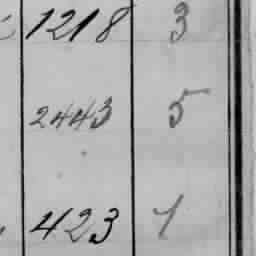 1218 3
2443 5
423 1